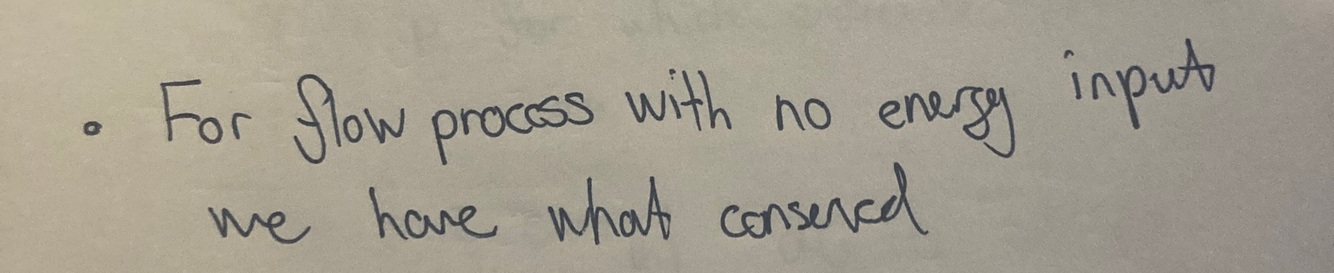 • For flow process with no energy input
we have what conserved